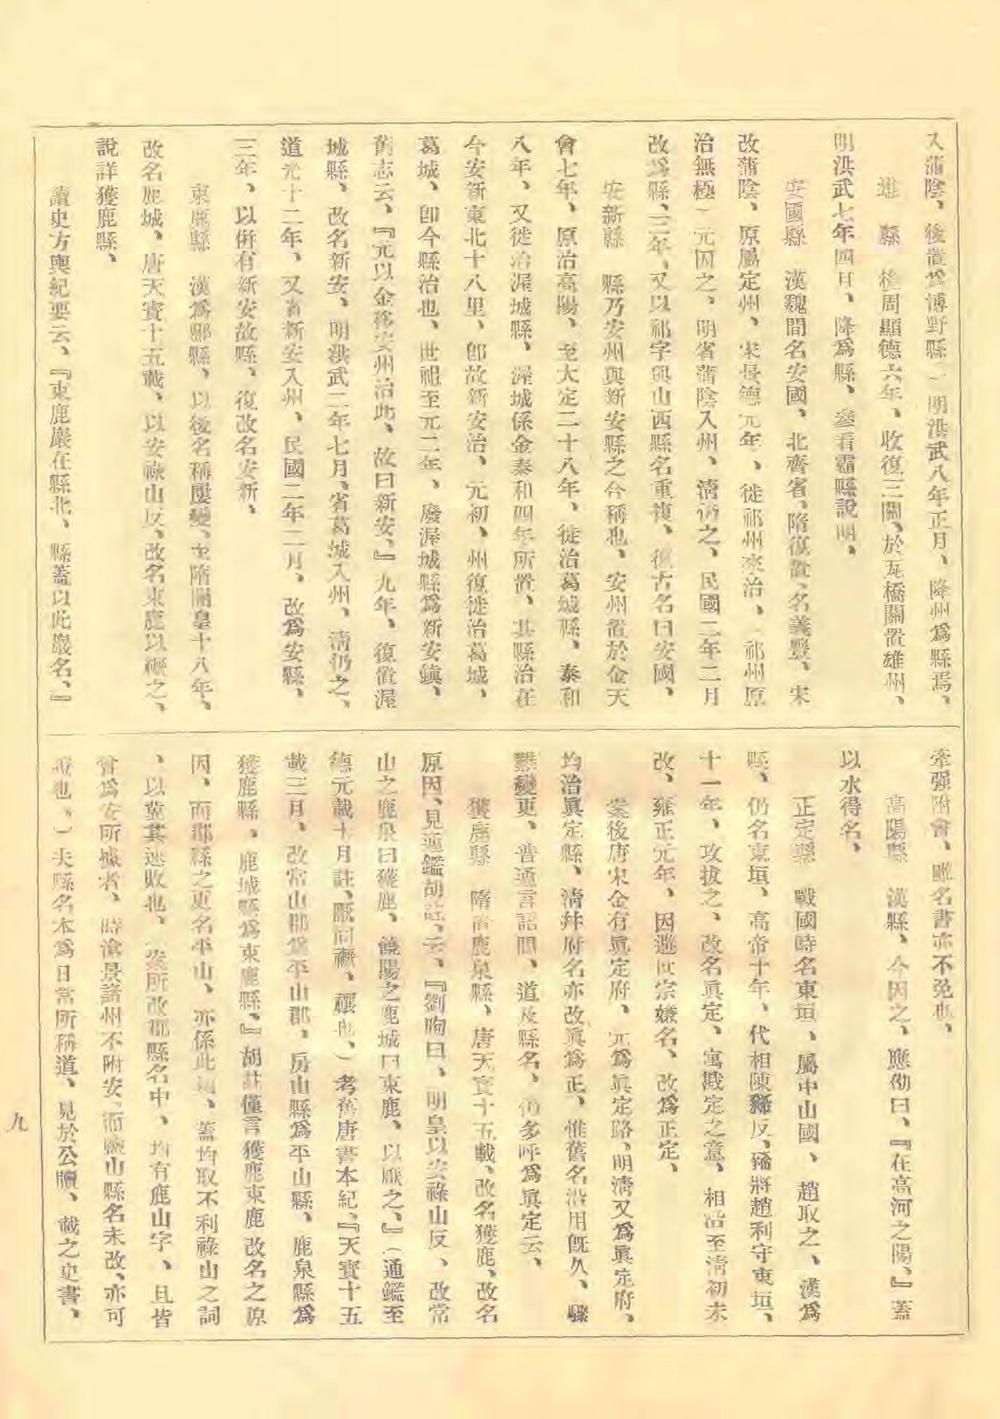 入蒲陰、後置為博野縣）明洪武八年正月、降州為縣焉、
雄　縣　後周顯德六年、收復三關、於瓦橋關置雄州、
明洪武七年四月、降為縣、參看霸縣說明、
安國縣　漢魏間名安國、北齊省、隋復置、名義豐、宋
改蒲陰、原屬定州、宋景德元年、徙祁州來治、（祁州原
治無極）元因之、明省蒲陰入州、清仍之、民國二年二月
改為縣、三年、又以祁字與山西縣名重複、復古名曰安國、
安新縣　縣乃安州與新安縣之今稱也、安州置於金天
會七年、原治高陽、至大定二十八年、徙治葛城縣、泰和
八年、又徙治渥城縣、渥城係金泰和四年所置、其縣治在
今安新東北十八里、卽故新安治、元初、州復徙治葛城、
葛城、卽今縣治也、世祖至元二年、廢渥城縣為新安鎮、
舊志云、『元以金移安州治此、故曰新安、』九年、復置渥
城縣、改名新安、明洪武二年七月、省葛城入州、清仍之、
道光十二年、又省新安入州、民國二年二月、改為安縣、
三年、以併有新安故縣、復改名安新、
束鹿縣　漢為鄡縣、以後名稱屢變、至隋開皇十八年、
改名鹿城、唐天寶十五載、以安祿山反、改名束鹿以厭之、
說詳獲鹿縣、
讀史方輿紀要云、『束鹿巖在縣北、縣蓋以此巖名、』
牽强附會、雖名書亦不免也、
高陽縣　漢縣、今因之、應劭曰、『在高河之陽、』蓋
以水得名、
正定縣　戰國時名東垣、屬中山國、趙取之、漢為
縣、仍名東垣、高帝十年、代相陳豨反、豨將趙利守東垣、
十一年、攻拔之、改名眞定、寓戡定之意、相沿至清初未
改、雍正元年、因避世宗嫌名、改為正定、
案後唐宋金有眞定府、元為眞定路、明清又為眞定府、
均治眞定縣、清幷府名亦改眞為正、惟舊名沿用旣久、驟
難變更、普通言語間、道及縣名、仍多呼為眞定云、
獲鹿縣　隋置鹿泉縣、唐天寶十五載、改名獲鹿、改名
原因、見通鑑胡註、云、『劉昫曰、明皇以安祿山反、改常
山之鹿泉曰獲鹿、饒陽之鹿城曰束鹿、以厭之、』（通鑑至
德元載十月註、厭同禳、禳也、）考舊唐書本紀、『天寶十五
載三月、改常山郡為平山郡、房山縣為平山縣、鹿泉縣為
獲鹿縣、鹿城縣為束鹿縣、』胡註僅言獲鹿束鹿改名之原
因、而郡縣之更名平山、亦係此故、蓋均取不利祿山之詞
、以冀其速敗也、案所改郡縣名中、均有鹿山字、且皆
曾為安所據者、時滄景諸州不附安、而鹽山縣名未改、亦可
證也、）夫縣名本為日常所稱道、見於公牘、載之史書、
九